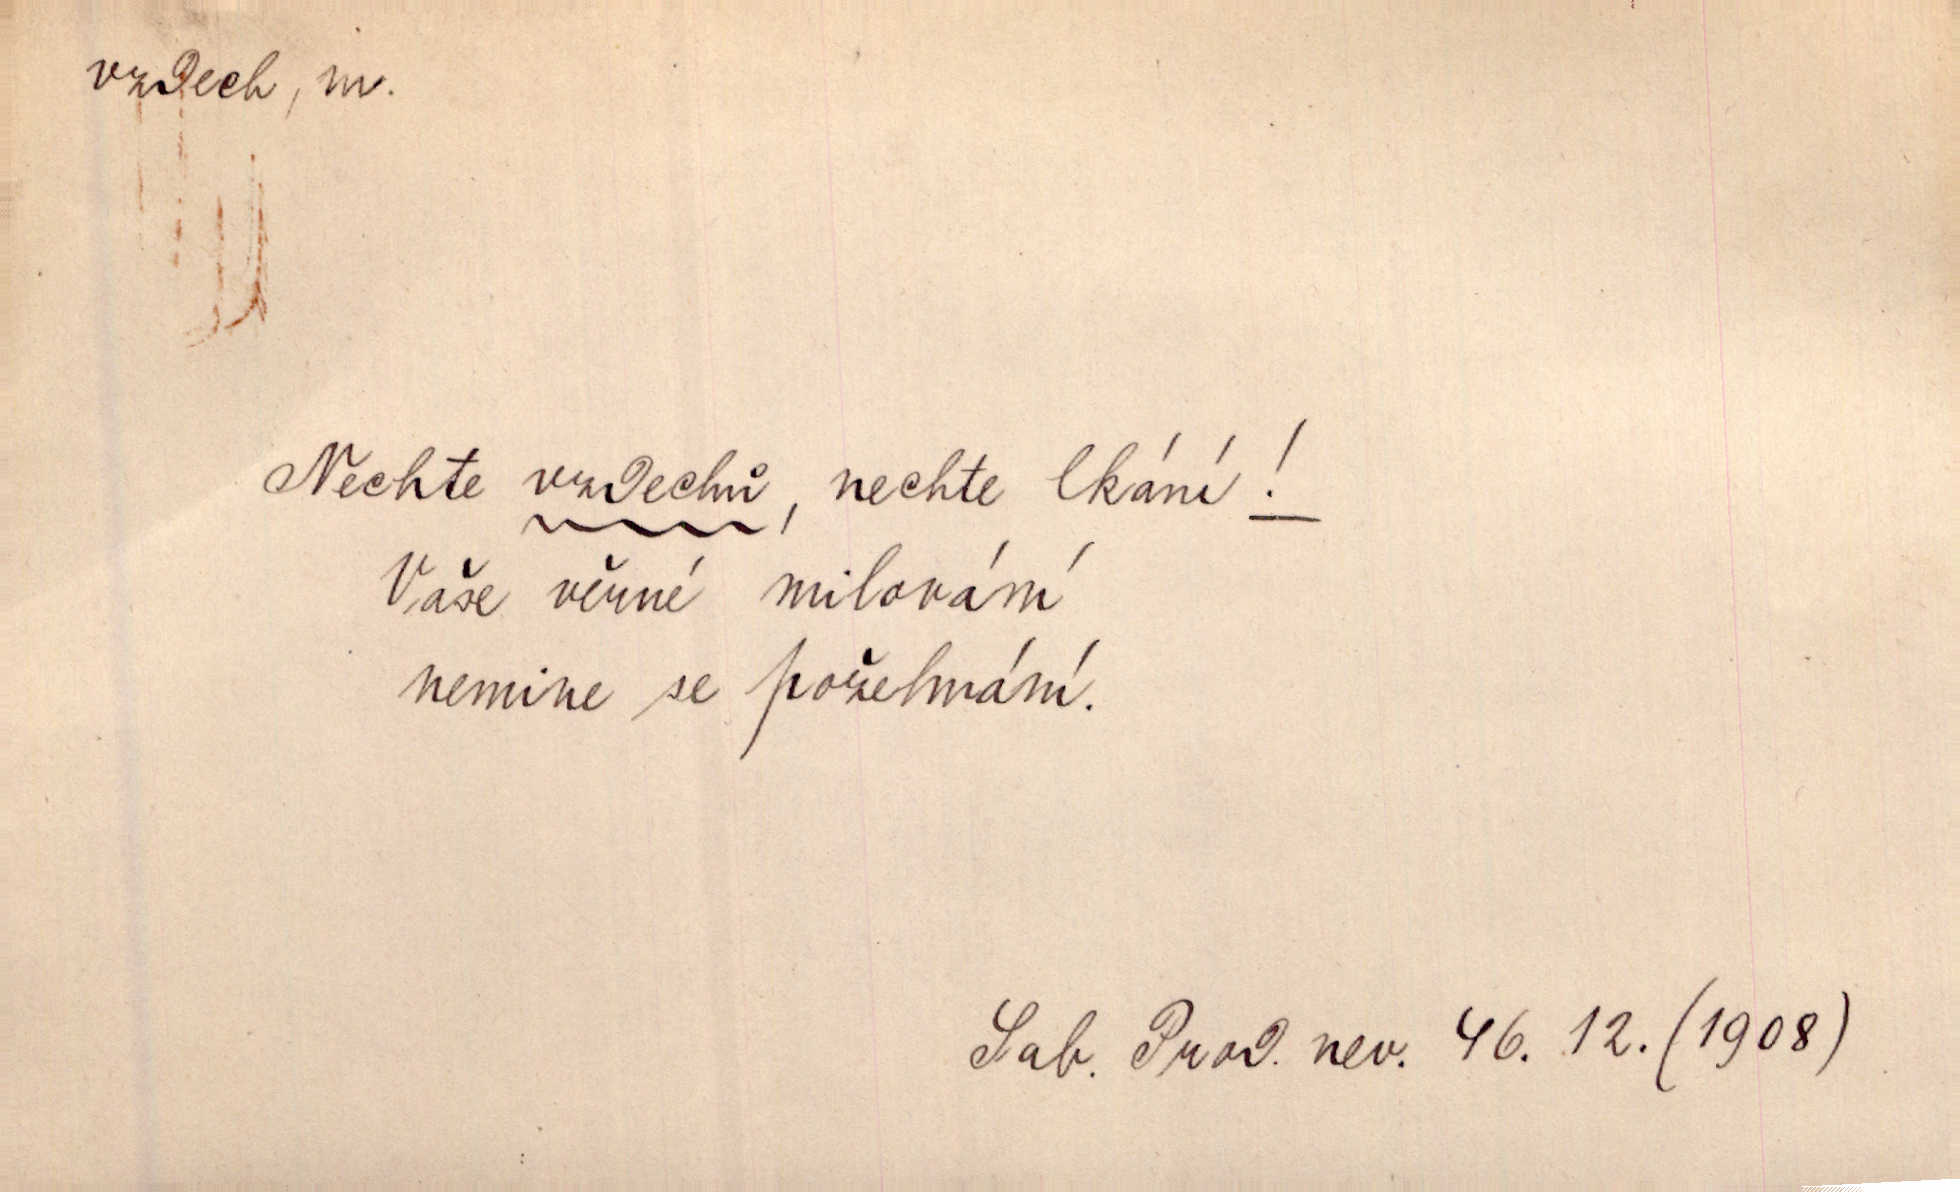 vzdech, m.
Nechte vzdechů, nechte lkání!
Vaše věrné milování
nemine se požehnání.
Sab. Prod. nev. 46. 12. (1908)